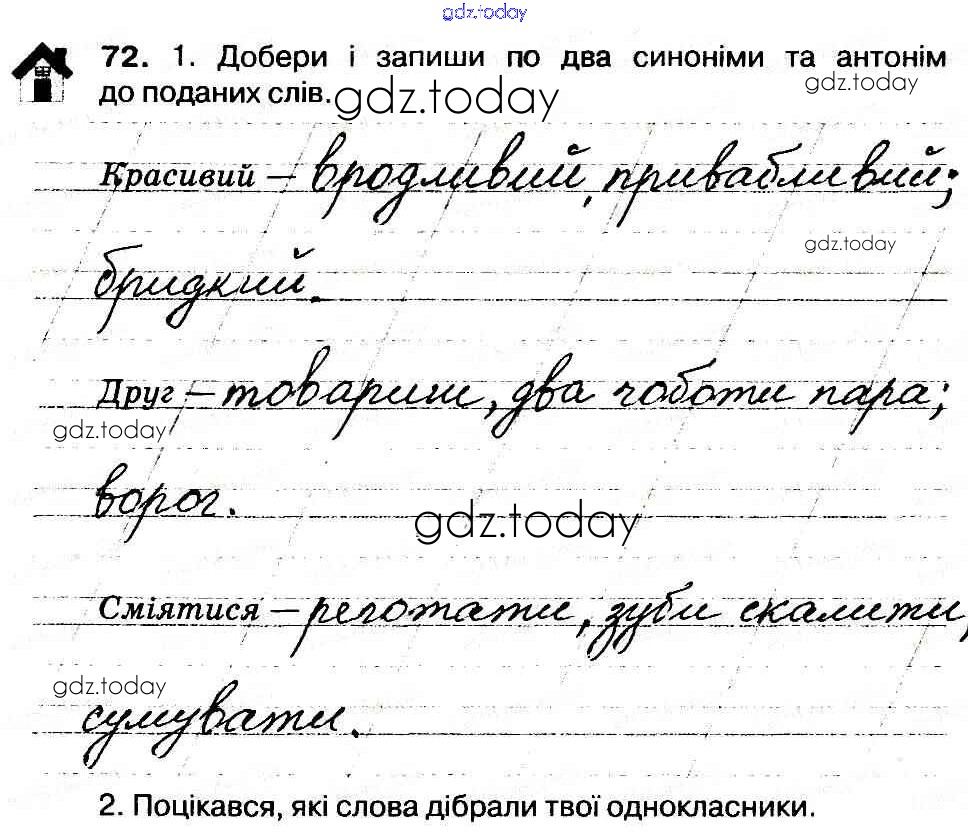 gdz.today
72. 1. Добери і запиши по два синоніми та антонім
gdz.today
до поданих слів.
gdz.today
Красивий – вродливий, привабливий;
gdz.today
бридкий.
Друг – товариш, два чоботи пара;
gdz.today
ворог.
gdz.today
Сміятися – реготати, зуби скалити,
gdz.today
сумувати.
2. Поцікався, які слова дібрали твої однокласники.